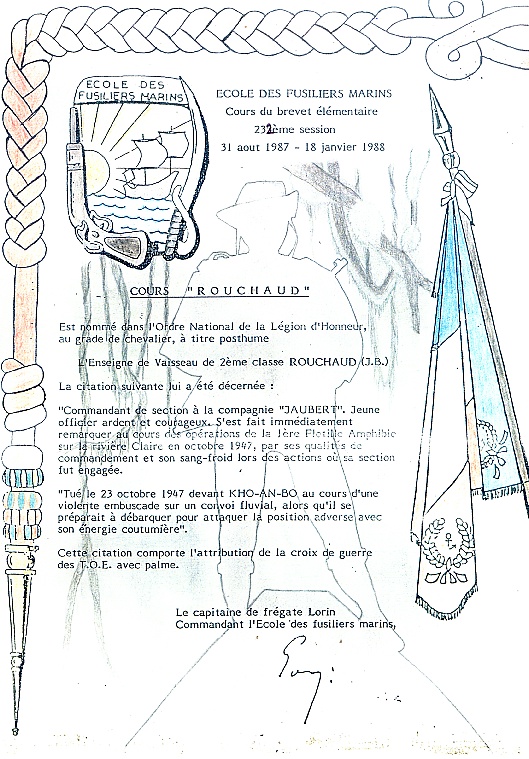 ECOLE DES
FUSILIERS MARINS
ECOLE DES FUSILIERS MARINS
Cours du brevet élémentaire
232ème session
31 aout 1987 - 18 janvier 1988
COURS "ROUCHAUD"
Est nommé dans l'Ordre National de la Légion d'Honneur,
au grade de chevalier, à titre posthume
l'Enseigne de Vaisseau de 2ème classe ROUCHAUD (J.B.)
La citation suivante lui a été décernée :
"Commandant de section à la compagnie "JAUBERT". Jeune
officier ardent et courageux. S'est fait immédiatement
remarquer au cours des opérations de la 1ère Flotille Amphibie
sur la rivière Claire en octobre 1947, par ses qualités de
commandement et son sang-froid lors des actions où sa section
fut engagée.
"Tué le 23 octobre 1947 devant KHO-AN-BO au cours d'une
violente embuscade sur un convoi fluvial, alors qu'il se
préparait à débarquer pour attaquer la position adverse avec
son énergie coutumière".
Cette citation comporte l'attribution de la croix de guerre
des T.O.E. avec palme.
Le capitaine de frégate Lorin
Commandant l'Ecole des fusiliers marins,